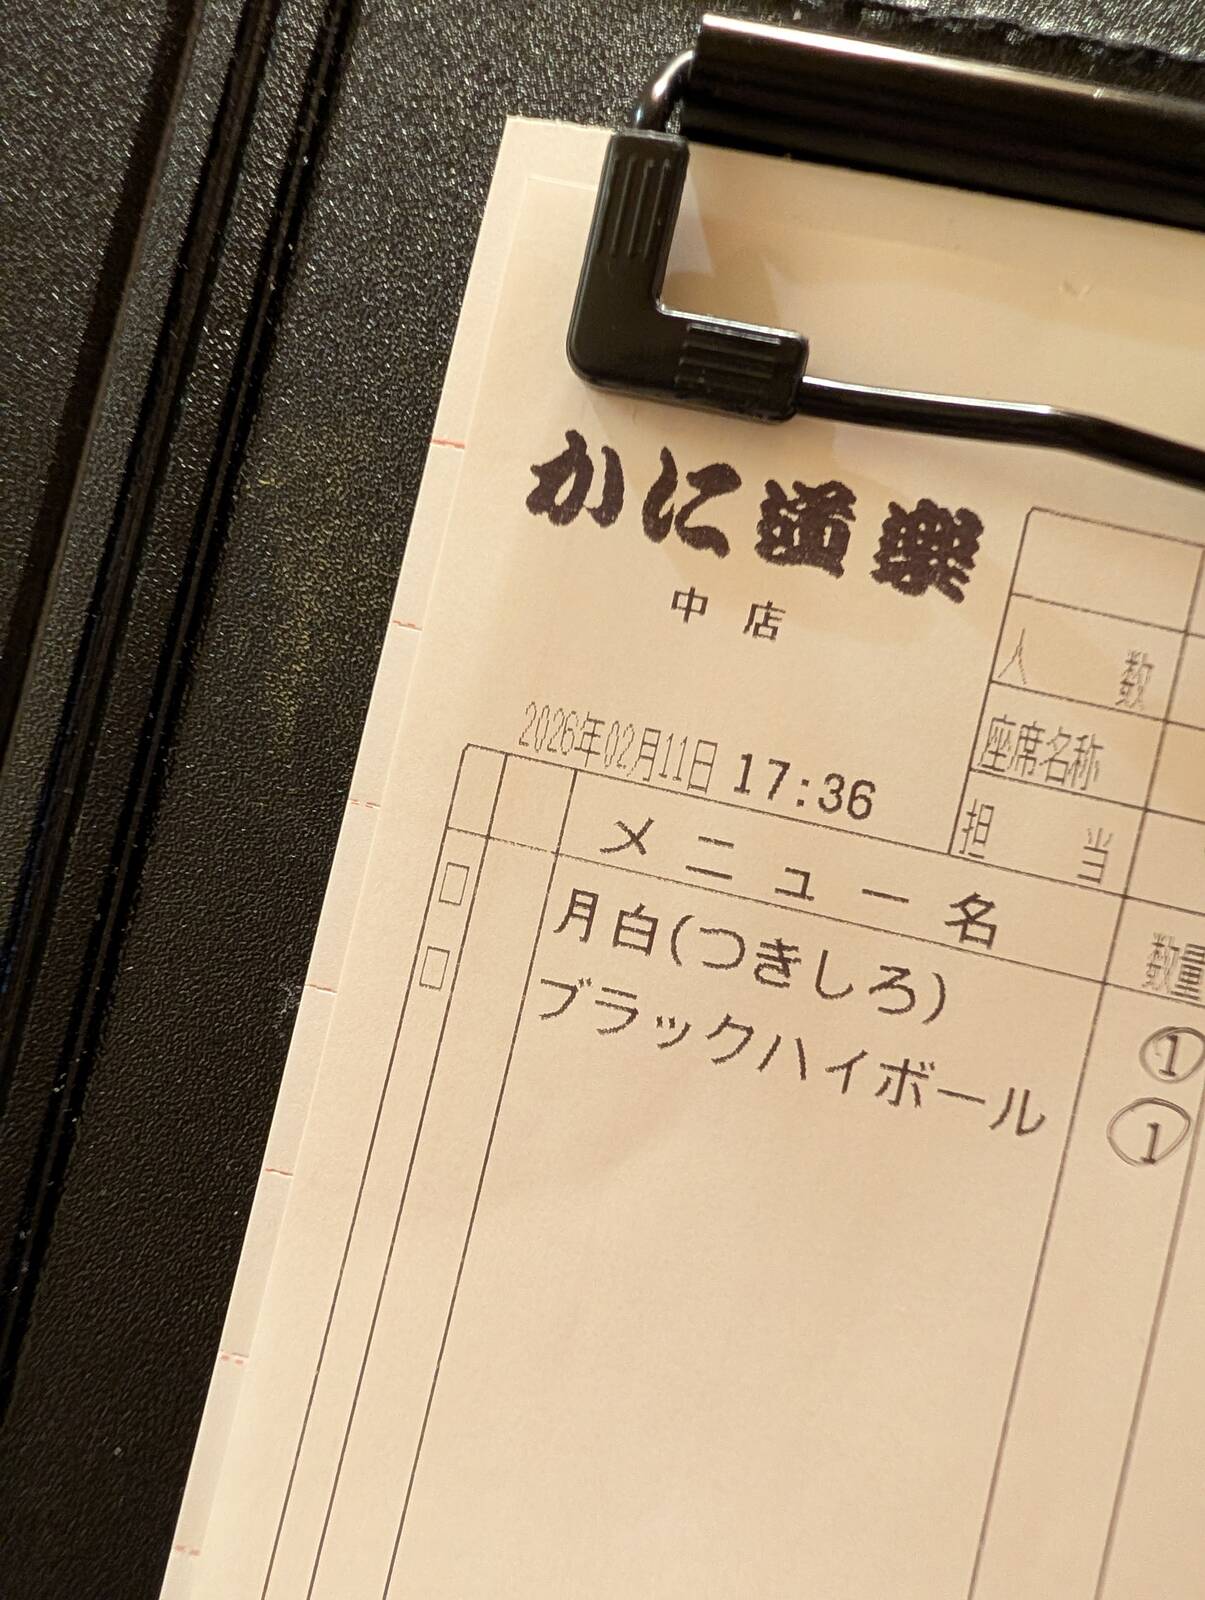 かに道楽
中店
人数
座席名称
2026年02月11日 17:36
担当
メニュー名 数量
月白(つきしろ) 1
ブラックハイボール 1